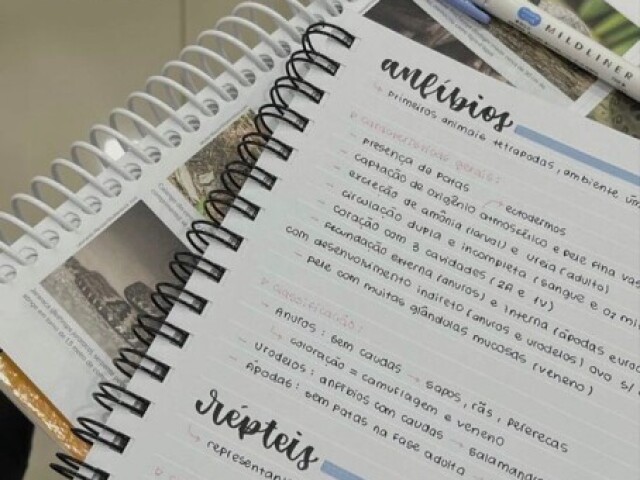 MILDLINER
anfíbios
↳ primeiros animais tetrápodas, ambiente úm
características gerais:
- presença de patas
→ ectodermos
- captação de oxigênio atmosférico e pele fina vas
- excreção de amônia (larva) e ureia (adulto)
- circulação dupla e incompleta (sangue e O2 mi
- coração com 3 cavidades (2A e 1V)
- fecundação externa (anuros) e interna (ápodas e uro
com desenvolvimento indireto (anuros e urodelos) ovo s/
- pele com muitas glândulas mucosas (veneno)
classificação:
- Anuros: sem caudas → sapos, rãs, pererecas
↳ coloração = camuflagem e veneno
- Urodelos: anfíbios com caudas → salamandr
- Ápodas: sem patas na fase adulta →
répteis
↳ representan